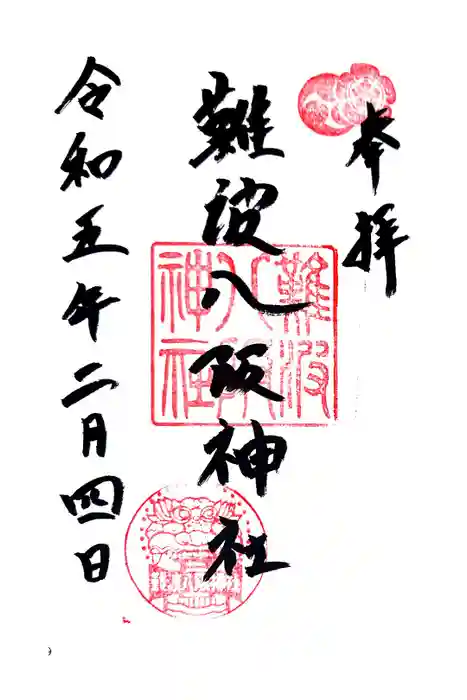 奉拝
難波八阪神社
難波
八阪
神社
令和五年二月四日